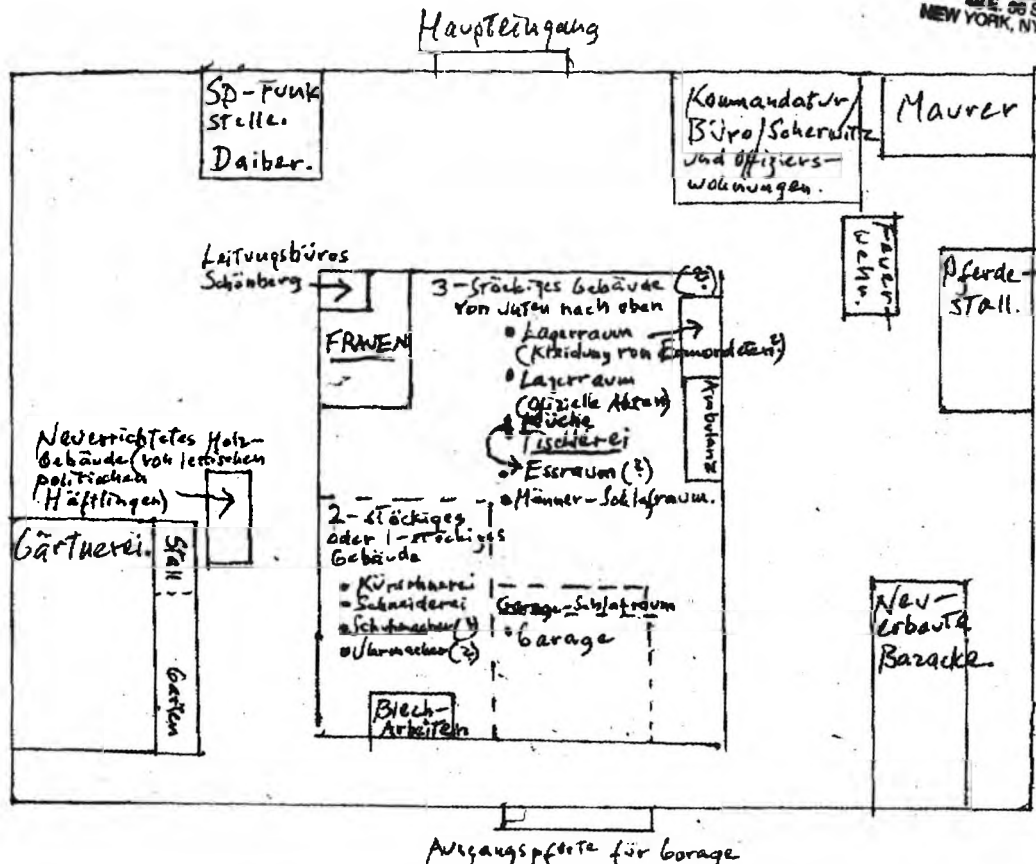 Haupteingang
NEW YORK, NY
SD-Funk
stelle.
Daiber.
Kommandatur/
Büro/Scherwitz
und Offiziers-
wohnungen.
Maurer
Feuer-
wehr.
Pferde-
stall.
Leitungsbüros
Schönberg
FRAUEN
3-stöckiges Gebäude
von unten nach oben
(?)
• Lagerraum
(Kleidung von Ermordeten?)
• Lagerraum
(Offizielle Akten)
• Küche
Tischlerei
• Essraum (?)
• Männer-Schlafraum.
Ambulanz
Neuerrichtetes Holz-
Gebäude (von lettischen
politischen
Häftlingen)
Gärtnerei.
Stall
Garten
2-stöckiges
oder 1-stöckiges
Gebäude
• Kürschnerei
• Schneiderei
• Schuhmacher (?)
• Uhrmacher (?)
Garage-Schlafraum
• Garage
Blech-
Arbeiten
Neu-
erbaute
Baracke.
Ausgangspforte für Garage